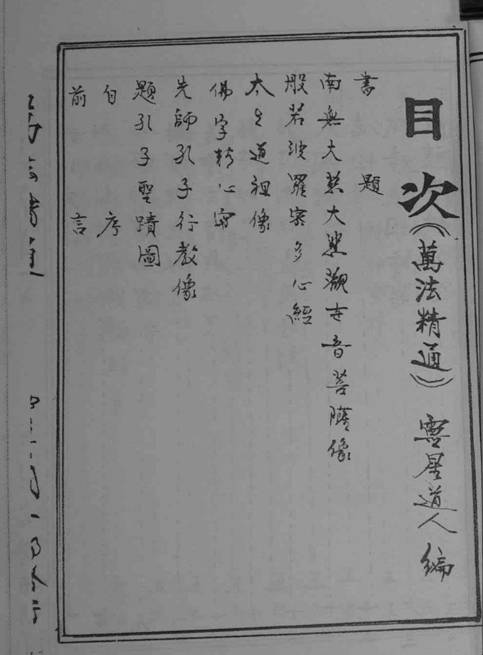 目次（萬法精通） 靈星道人編
書題
南無大慈大悲觀世音菩薩像
般若波羅密多心經
太上道祖像
佛字精心寫
先師孔子行教像
題孔子聖蹟圖
自序
前言